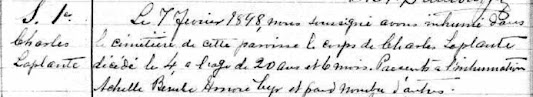 S. 1e
Charles
Laplante
Le 7 février 1898, nous soussigné avons inhumé dans
le cimetière de cette paroisse le corps de Charles Laplante
décédé le 4, a l'age de 20 ans et 6 mois. Presents a l'inhumation
Achille Honoré Cyr et grand nombre d'autres.